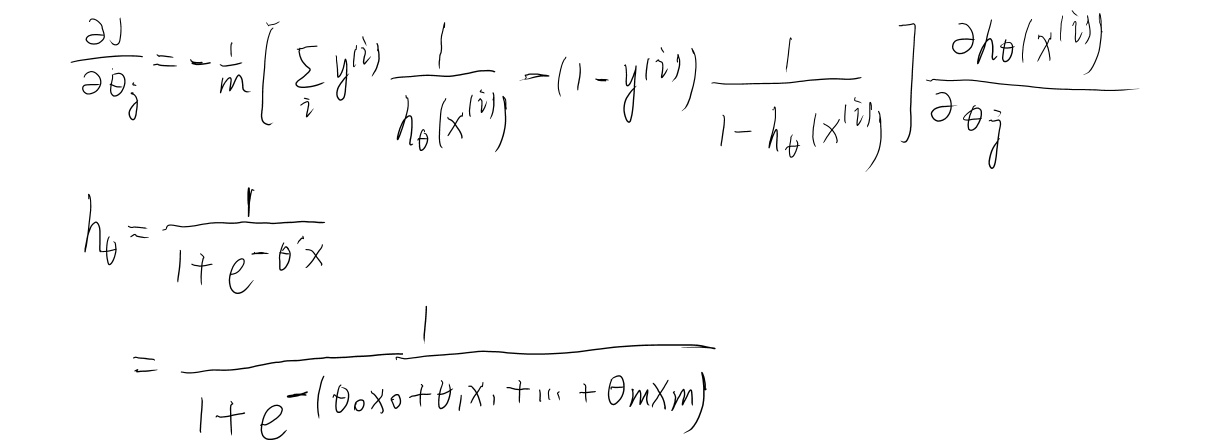 ∂J/∂θ_j = -1/m [ Σ_i y^(i) 1/(h_θ(x^(i))) - (1 - y^(i)) 1/(1 - h_θ(x^(i))) ] ∂h_θ(x^(i))/∂θ_j
h_θ = 1/(1 + e^(-θ'x))
= 1/(1 + e^(-(θ_0x_0 + θ_1x_1 + ... + θ_mx_m)))